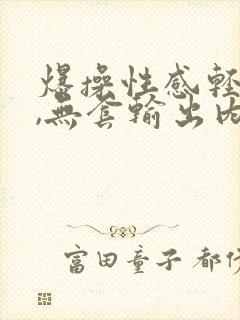 爆操性感軽
,無套輸出内
富田童子 都